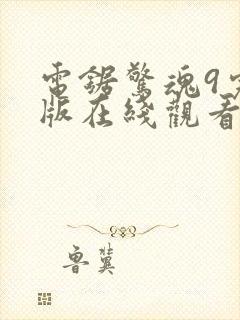 電鋸驚魂9完
版在綫觀看
魯冀